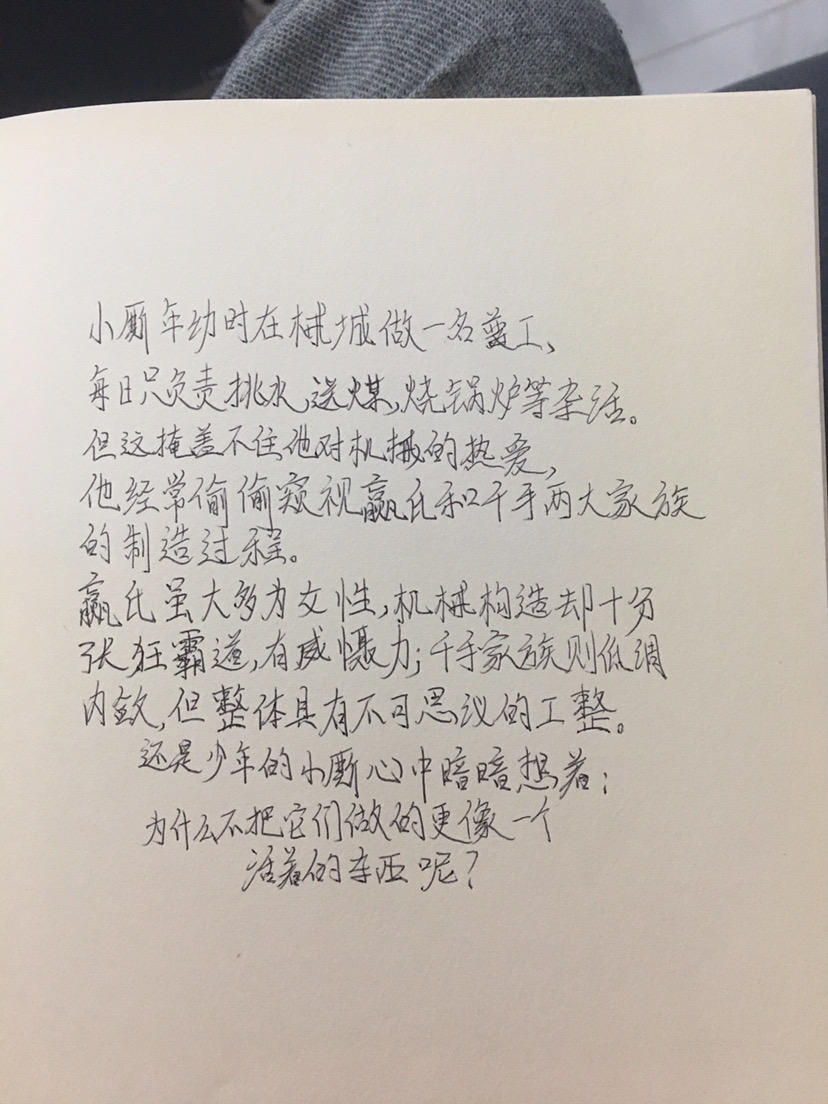 小厮年幼时在械城做一名蓝工、
每日只负责挑水,送煤,烧锅炉等杂活。
但这掩盖不住他对机械的热爱,
他经常偷偷窥视嬴氏和千手两大家族
的制造过程。
嬴氏虽大多为女性,机械构造却十分
张狂霸道,有威慑力;千手家族则低调
内敛,但整体具有不可思议的工整。
还是少年的小厮心中暗暗想着:
为什么不把它们做的更像一个
活着的东西呢?